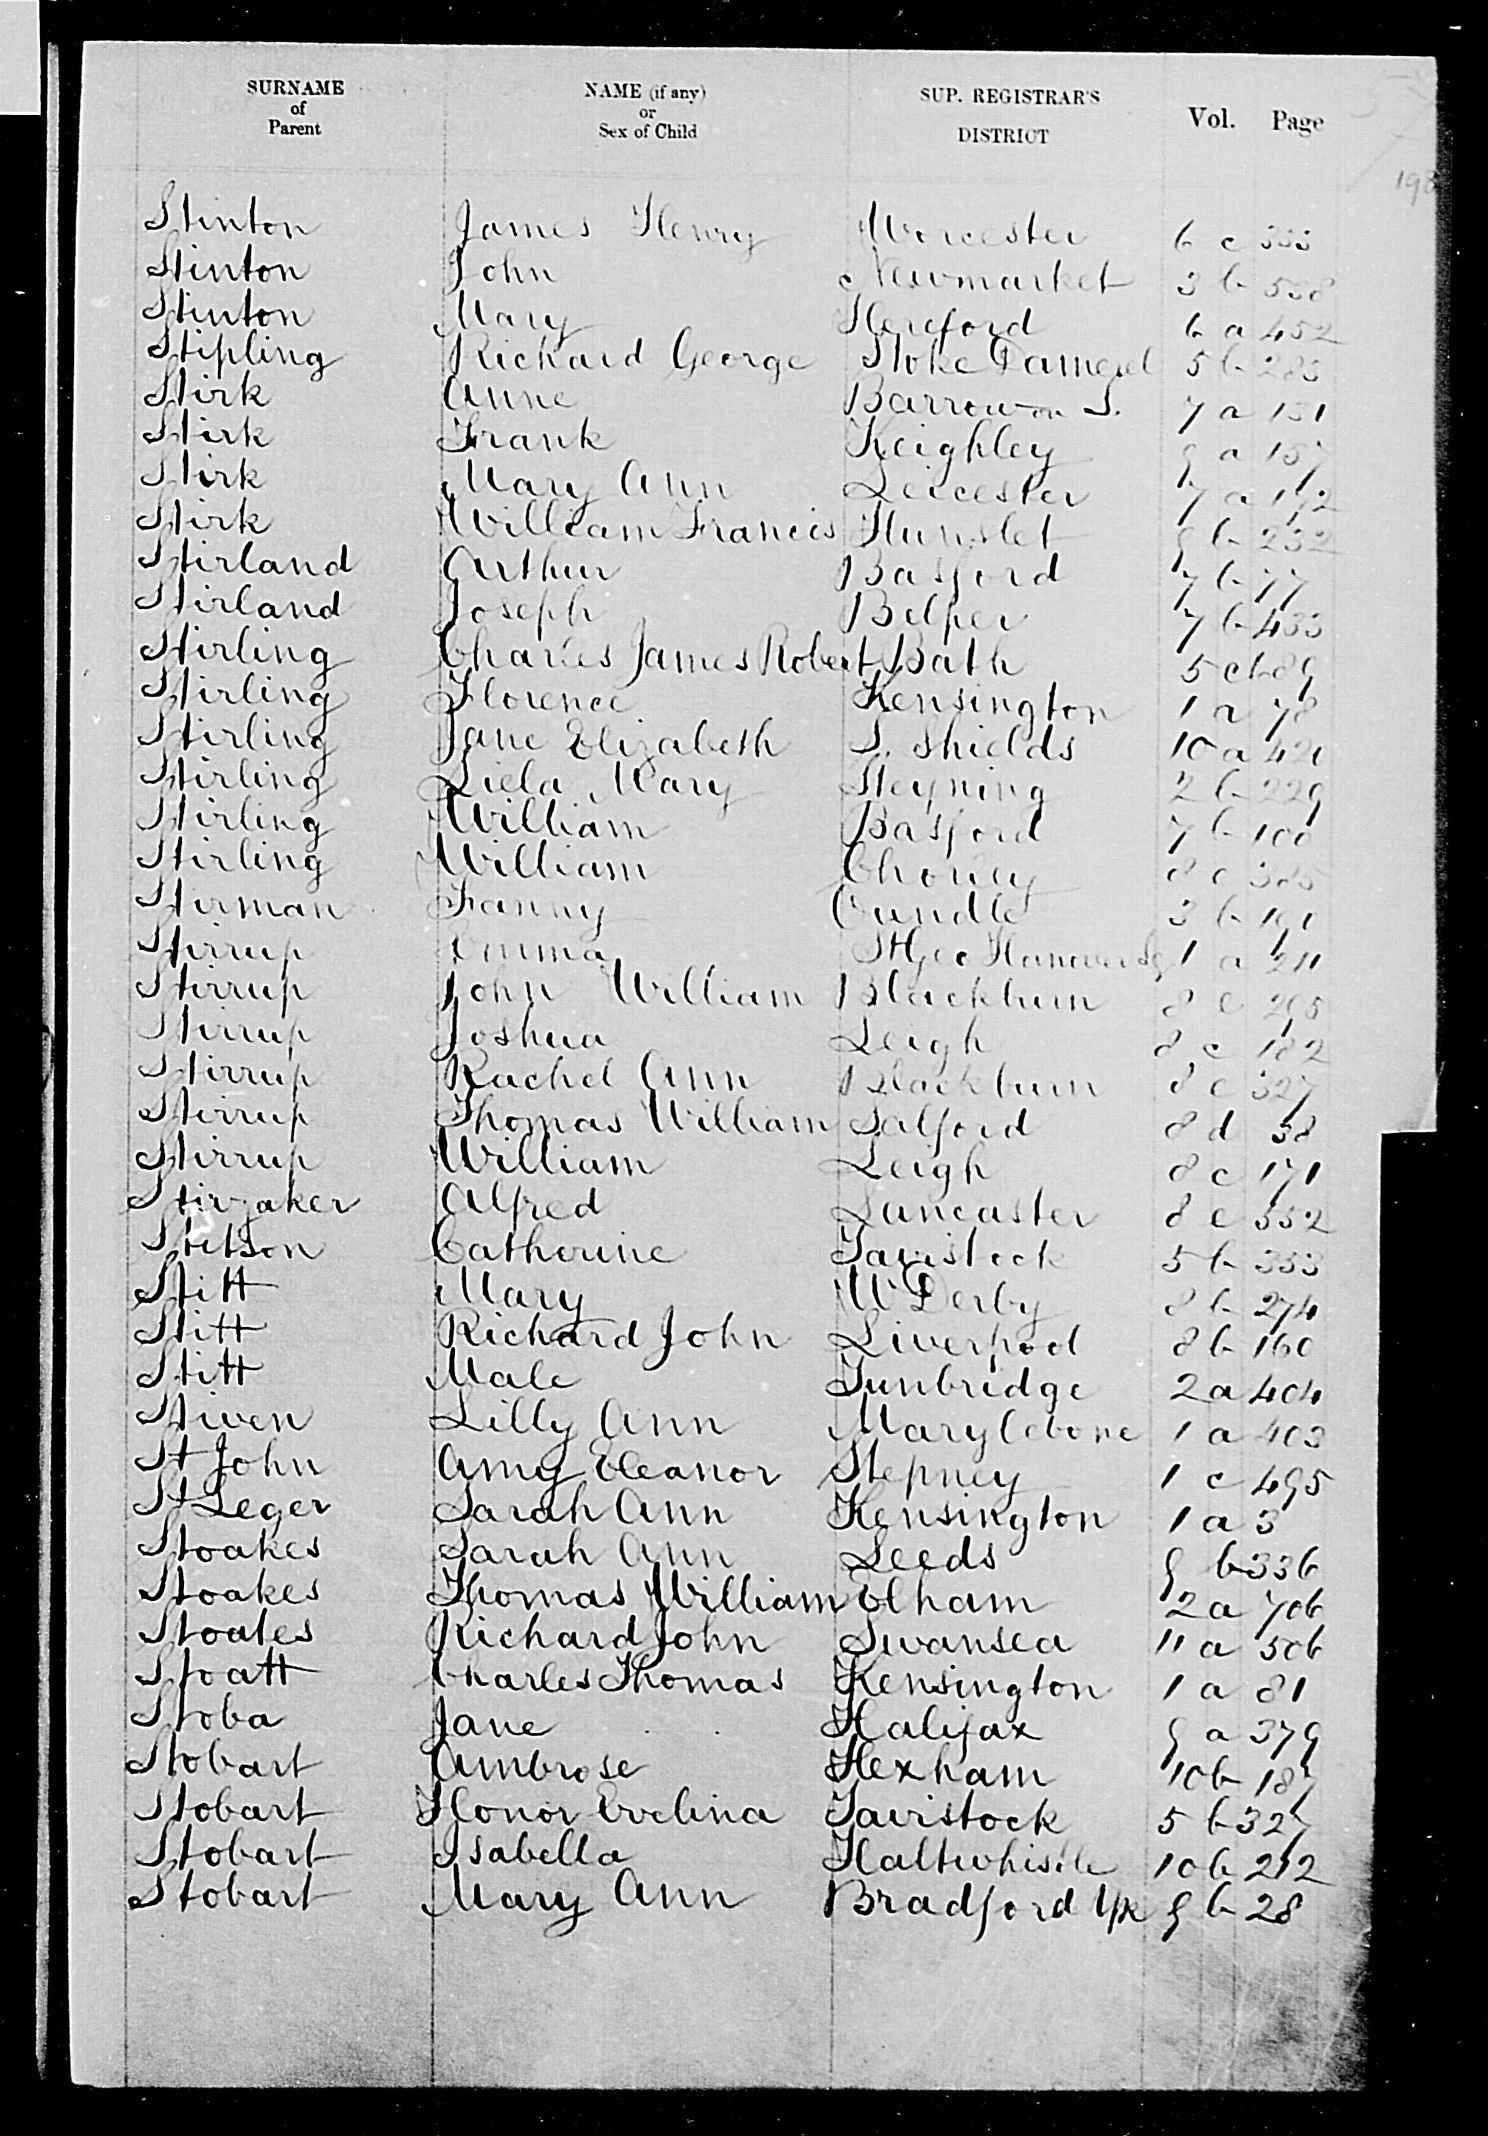 SURNAME of Parent NAME (if any) or Sex of Child SUP. REGISTRAR'S DISTRICT Vol. Page
Stinton James Henry Worcester 6 c 333
Stinton John Newmarket 3 b 538
Stinton Mary Hereford 6 a 452
Stipling Richard George Stoke Damerel 5 b 283
Stirk Anne Barrow on S. 7 a 131
Stirk Frank Keighley 9 a 157
Stirk Mary Ann Leicester 7 a 192
Stirk William Francis Hunslet 9 b 232
Stirland Arthur Basford 7 b 77
Stirland Joseph Belper 7 b 433
Stirling Charles James Robert Bath 5 c 689
Stirling Florence Kensington 1 a 78
Stirling Jane Elizabeth S. Shields 10 a 421
Stirling Liela Mary Steyning 2 b 229
Stirling William Basford 7 b 100
Stirling William Chorley 8 c 385
Stirman Fanny Oundle 3 b 191
Stirrup Emma St Geo Hanover Sq 1 a 211
Stirrup John William Blackburn 8 e 295
Stirrup Joshua Leigh 8 c 182
Stirrup Rachel Ann Blackburn 8 e 327
Stirrup Thomas William Salford 8 d 38
Stirrup William Leigh 8 c 171
Stirzaker Alfred Lancaster 8 e 552
Stitson Catherine Tavistock 5 b 333
Stitt Mary W Derby 8 b 274
Stitt Richard John Liverpool 8 b 160
Stitt Male Tunbridge 2 a 404
Stiven Lilly Ann Marylebone 1 a 403
St John Amy Eleanor Stepney 1 c 495
St Leger Sarah Ann Kensington 1 a 3
Stoakes Sarah Ann Leeds 9 b 336
Stoakes Thomas William Elham 2 a 706
Stoates Richard John Swansea 11 a 506
Stoatt Charles Thomas Kensington 1 a 81
Stoba Jane Halifax 9 a 379
Stobart Ambrose Hexham 10 b 187
Stobart Honor Evelina Tavistock 5 b 327
Stobart Isabella Haltwhistle 10 b 212
Stobart Mary Ann Bradford Yk 9 b 28